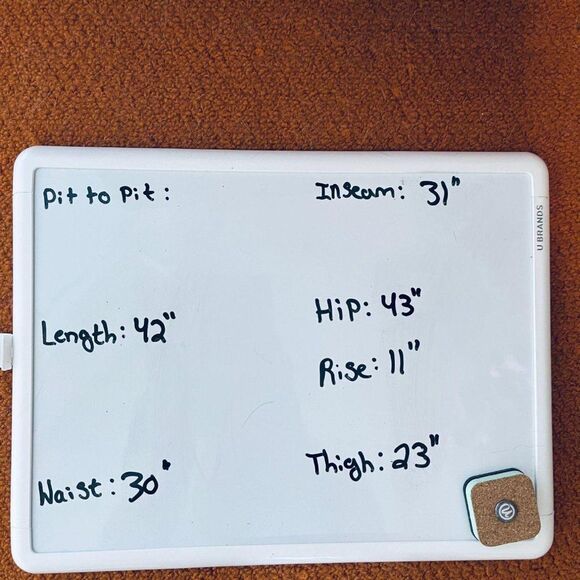 Pit to Pit:
Inseam: 31"
U BRANDS
Length: 42"
Hip: 43"
Rise: 11"
Waist: 30"
Thigh: 23"